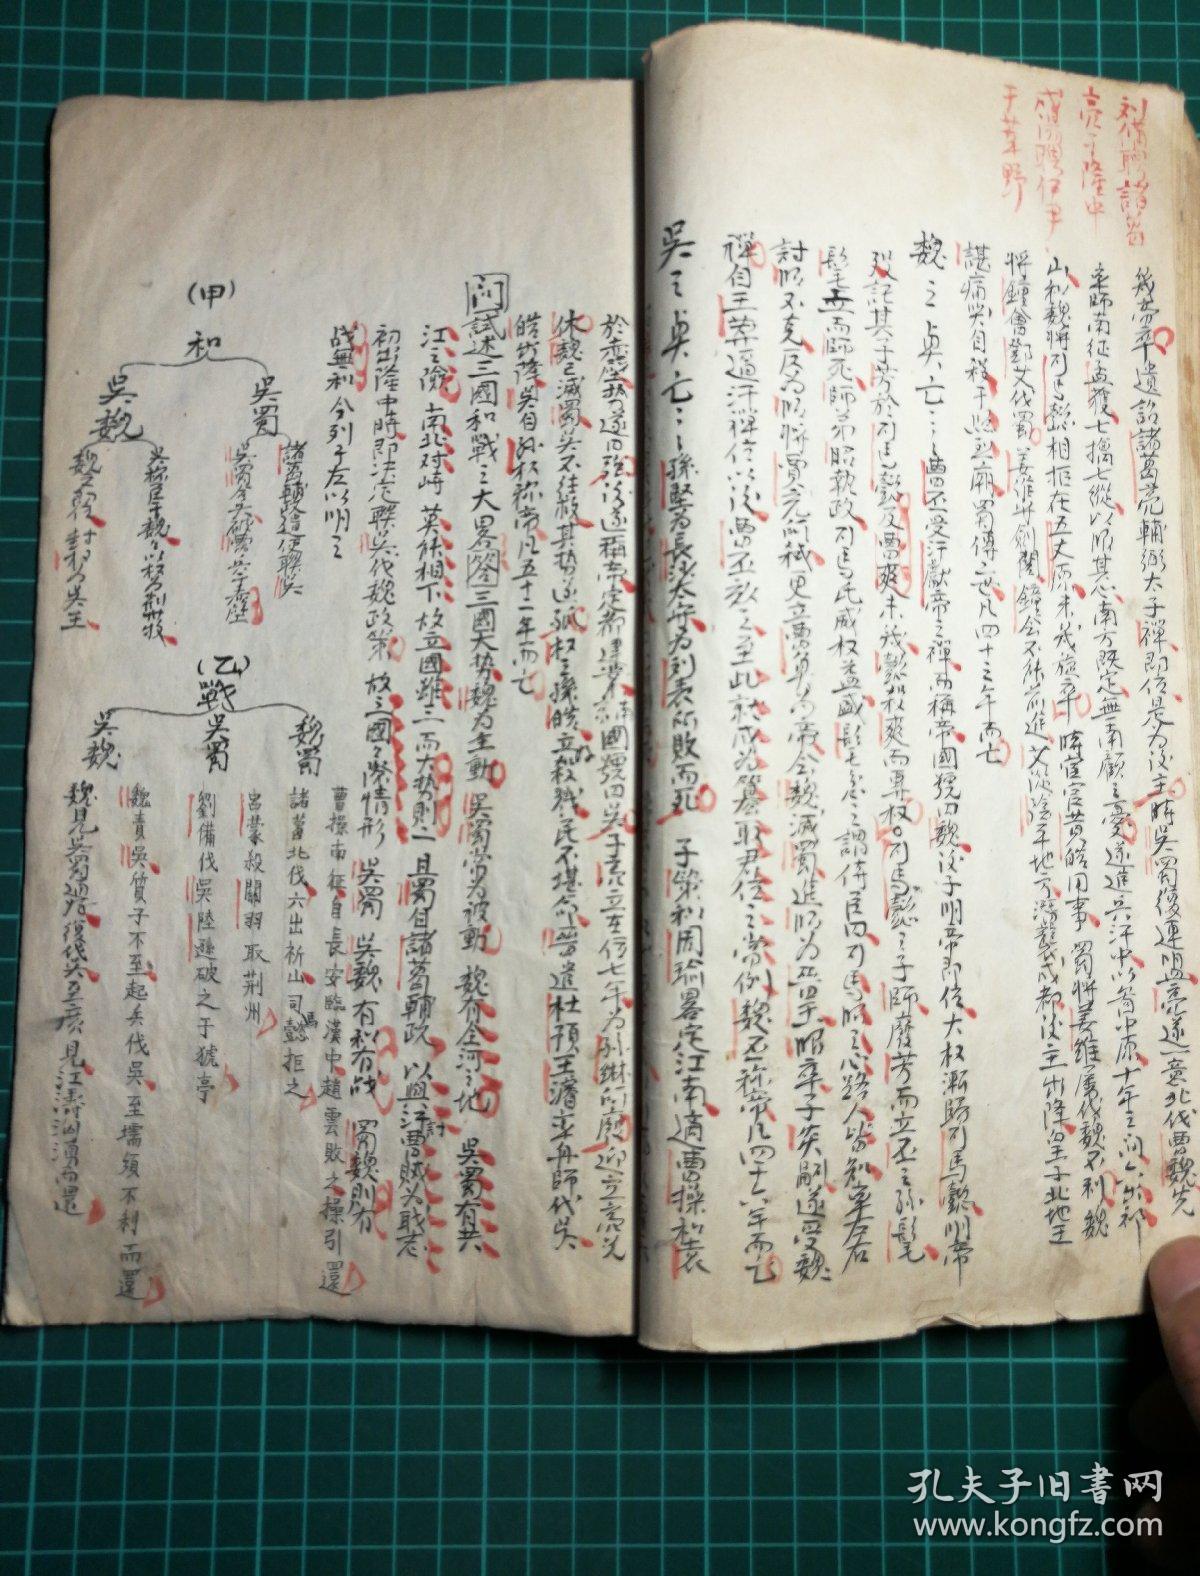 劉備聘諸葛
亮于隆中
成湯聘伊尹
于莘野
幾帝卒遺詔諸葛亮輔弼太子禪即位是為後主時吳蜀復連盟亮遂一意北伐曹魏先
率師南征孟獲七擒七縱以服其心南方既定無南顧之憂遂進兵漢中以圖中原十年之間六出祁
山和魏將司馬懿相拒在五丈原未幾病卒 時宦官黃皓用事 蜀將姜維屢伐魏不利魏
將鐘會鄧艾伐蜀 姜維拒劍閣 鐘會不能前進 艾從陰平地方襲成都後主出降皇子北地王
諶痛哭自殺于昭烈廟蜀傳二世凡四十三年而亡
魏之興亡 曹丕受漢獻帝之禪而稱帝國號曰魏後子明帝即位大權漸歸司馬懿明帝
歿託其子芳於司馬懿及曹爽未幾懿殺爽而專權 司馬懿之子師廢芳而立丕之孫髦
髦立而師死師弟昭執政司馬氏威權益盛髦 謂侍臣曰司馬昭之心路人皆知率左右
討昭不克反為昭將賈充所弒更立曹奐為帝會魏滅蜀進昭為晉王昭卒子炎嗣遂受魏
禪自王莽逼漢禪位以後曹丕 之至此 君位之常例魏 稱帝凡四十六年而亡
吳之興亡 孫堅為長沙太守為劉表所敗而死 子策和周瑜畧定江南適曹操和袁
於赤壁 遂 後遂稱帝定都建業國號曰吳子亮立在位七年為孫綝所廢迎立亮兄
休魏已滅蜀吳不往救其勢遂孤權之孫皓立殺戮民不堪命晉遣杜預王濬率舟師伐吳
皓出降吳自孫權稱帝凡五十一年而亡
問試述三國和戰之大畧答三國大勢魏為主動 吳蜀常為被動 魏有全河之地 吳蜀有共
江之險 南北对峙 英 相下 故立國雖三而大勢則二 且蜀自諸葛輔政 以興漢討曹賊為職志
初出隆中時即决定聯吳伐魏政策 故三國之際情形 吳蜀 吳魏有和有战 蜀魏則有
战無和 今列于左以明之
(甲)
和
吳蜀
諸葛輔政遣使聯吳
吳魏
吳稱臣于魏魏以权为荆州牧
魏 封权为吳王
(乙)
戰
魏蜀
曹操南征自長安臨漢中趙雲敗之操引還
諸葛北伐六出祈山司馬懿拒之
吳蜀
呂蒙殺關羽取荆州
劉備伐吳陸遜破之于猇亭
吳魏
魏責吳質子不至起兵伐吳至壖須不利而還
魏見吳蜀通好復伐吳至廣見江濤洶湧而還
孔夫子旧書网
www.kongfz.com